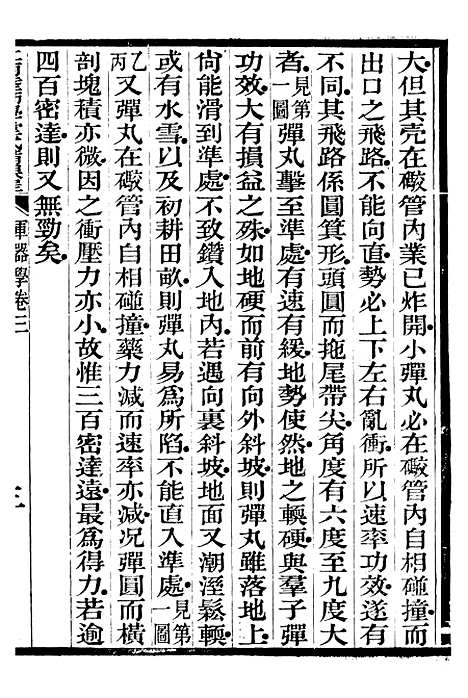 大但其壳在礮管内業已炸開小彈丸必在礮管内自相碰撞而
出口之飛路不能向直勢必上下左右亂衝所以速率功效遂有
不同其飛路係圓箕形頭圓而拖尾帶尖角度有六度至九度大
者見第一圖彈丸擊至準處有速有緩地勢使然地之輭硬與羣子彈
功效大有損益之殊如地硬而前有向外斜坡則彈丸雖落地上
尙能滑到準處不致鑽入地内若遇向裏斜坡地面又潮溼鬆輭
或有水雪以及初耕田畝則彈丸易爲所陷不能直入準處見第一圖
乙丙又彈丸在礮管内自相碰撞藥力減而速率亦減况彈圓而橫
剖塊積亦微因之衝壓力亦小故惟三百密達遠最爲得力若逾
四百密達則又無勁矣
軍器學卷三
三